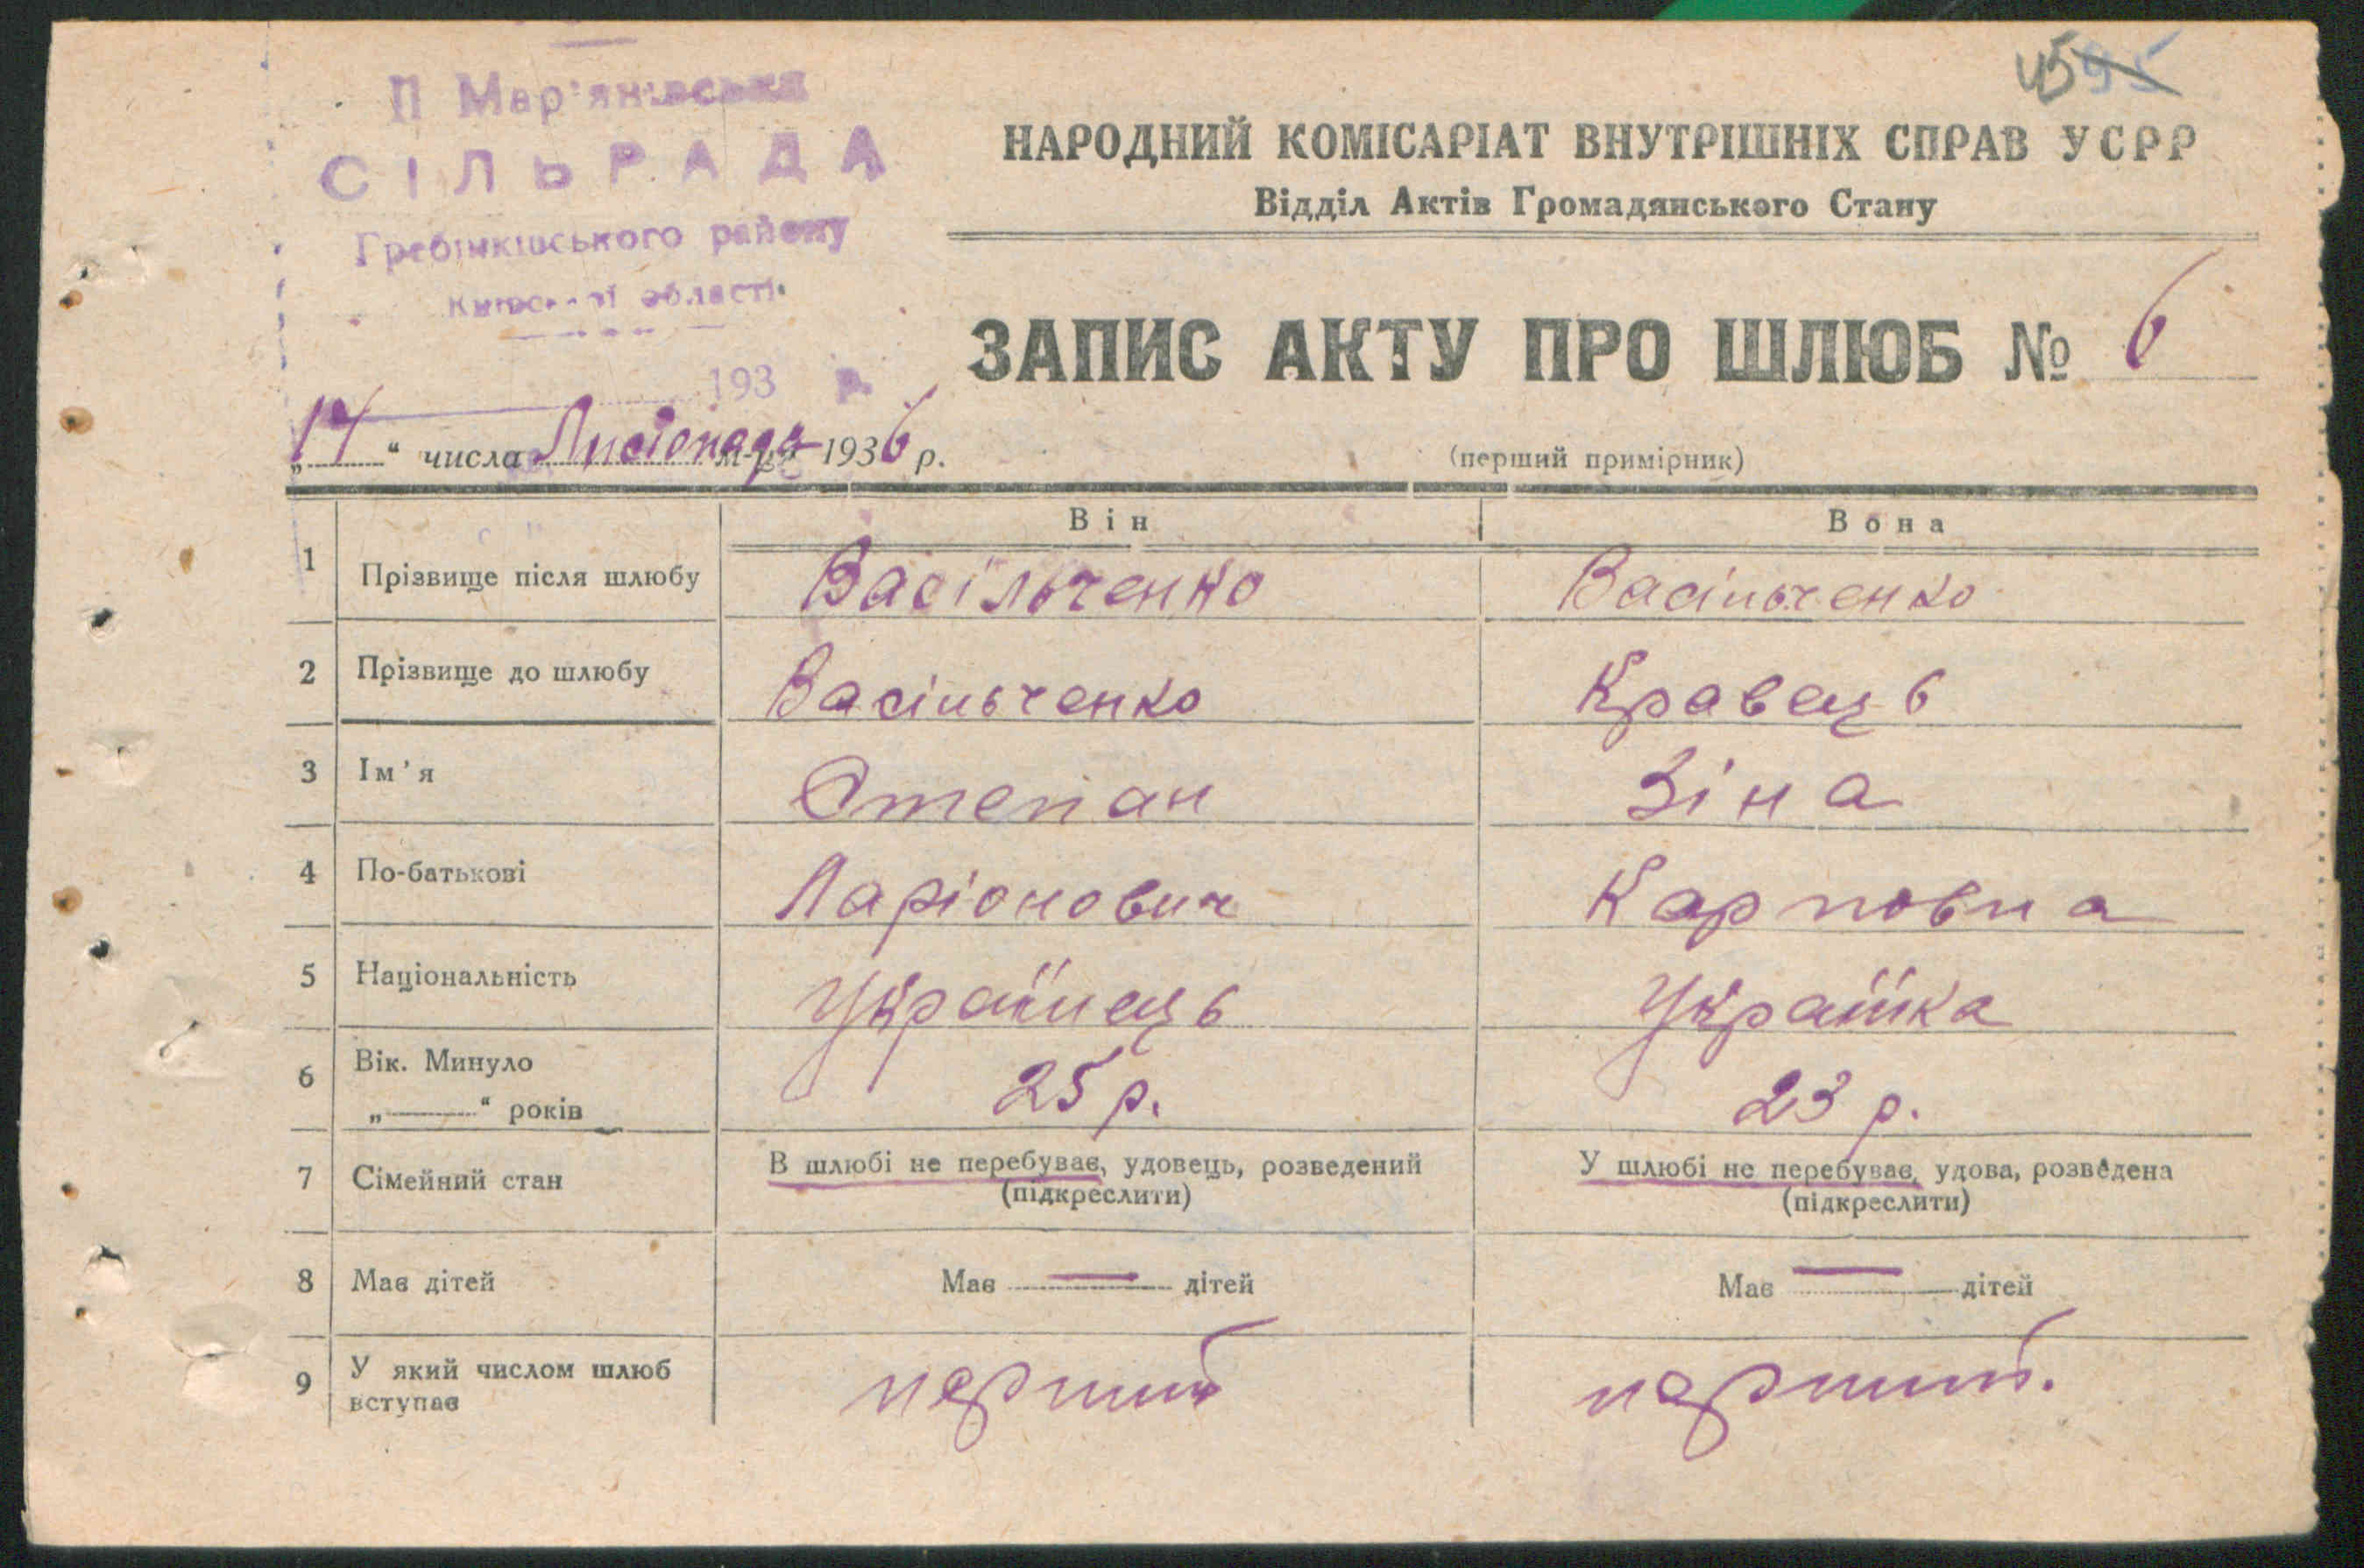 ІІ Мар'янівська
СІЛЬРАДА
Гребінківського району
Київської області
193 р.
45 95
НАРОДНИЙ КОМІСАРІАТ ВНУТРІШНІХ СПРАВ УСРР
Відділ Актів Громадянського Стану
ЗАПИС АКТУ ПРО ШЛЮБ № 6
„14“ числа Листопада м-ця 1936 р.
(перший примірник)
Він Вона
1 Прізвище після шлюбу Васільченко Васільченко
2 Прізвище до шлюбу Васільченко Кравець
3 Ім'я Степан Зіна
4 По-батькові Ларіонович Карповна
5 Національність Українець Українка
6 Вік. Минуло 25 р. 23 р.
„——“ років
7 Сімейний стан В шлюбі не перебуває, удовець, розведений У шлюбі не перебуває, удова, розведена
(підкреслити) (підкреслити)
8 Має дітей Має — дітей Має — дітей
9 У який числом шлюб перший перший.
вступає